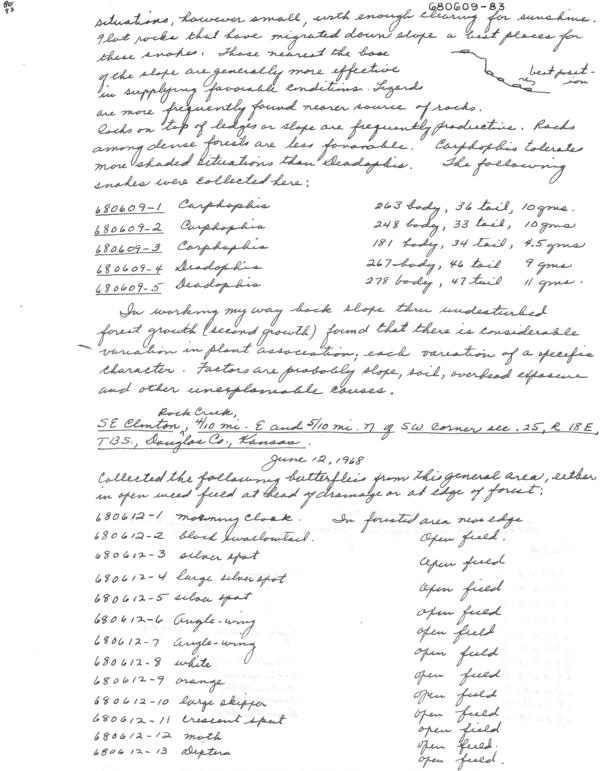 80
83
680609-83
situations, however small, with enough clearing for sunshine.
Flat rocks that have migrated down slope a best places for
these snakes. Those nearest the base
of the slope are generally more effective
in supplying favorable conditions. Lizards
best posit-
ion
are more frequently found nearer source of rocks.
Rocks on top of ledges or slope are frequently productive. Rocks
among dense forests are less favorable. Carphophis tolerate
more shaded situations than Diadophis. The following
snakes were collected here:
680609-1 Carphophis 263 body, 36 tail, 10 gms.
680609-2 Carphophis 248 body, 33 tail, 10 gms
680609-3 Carphophis 181 body, 34 tail, 4.5 gms
680609-4 Diadophis 267 body, 46 tail 9 gms
680609-5 Diadophis 278 body, 47 tail 11 gms.
In working my way back slope thru undesturbed
forest growth (second growth) found that there is considerable
variation in plant association; each variation of a specific
character. Factors are probably slope, soil, overhead exposure
and other unexplainable causes.
Rock Creek,
SE Clinton, 4/10 mi. E and 5/10 mi. N of SW corner sec. 25, R 18E,
T13S, Douglas Co., Kansas.
June 12, 1968
Collected the following butterflies from this general area, either
in open weed field at head of drainage or at edge of forest:
680612-1 mourning cloak. In forested area near edge
680612-2 black swallowtail. Open field.
680612-3 silver spot Open field
680612-4 large silver spot Open field
680612-5 silver spot open field
680612-6 Angle-wing open field
680612-7 Angle-wing open field
680612-8 white open field
680612-9 orange open field
680612-10 large skipper open field
680612-11 crescent spot open field
680612-12 moth open field.
680612-13 Diptera open field.